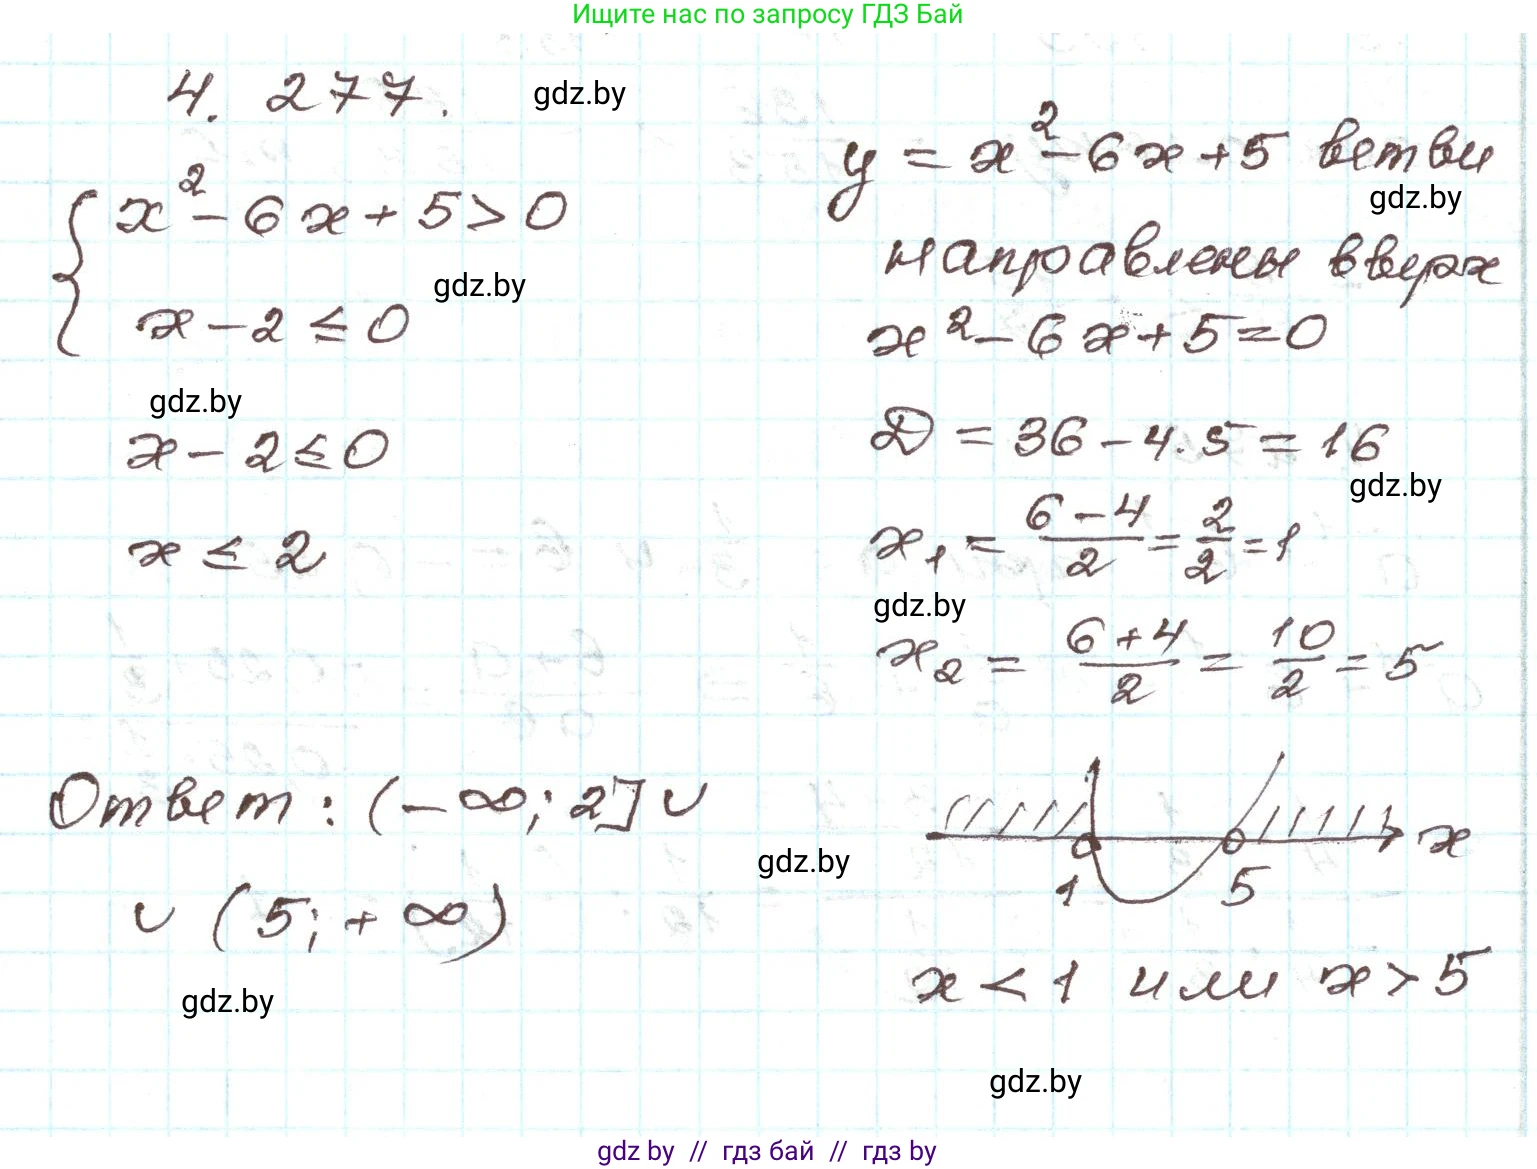 Ищите нас по запросу ГДЗ Бай
4. 277.
gdz.by
{ x² - 6x + 5 > 0
gdz.by
x - 2 ≤ 0
gdz.by
x - 2 ≤ 0
x ≤ 2
Ответ: (-∞; 2] ∪
∪ (5; +∞)
gdz.by
y = x² - 6x + 5 ветви
gdz.by
направлены вверх
x² - 6x + 5 = 0
D = 36 - 4·5 = 16
gdz.by
x₁ = (6 - 4)/2 = 2/2 = 1
gdz.by
x₂ = (6 + 4)/2 = 10/2 = 5
x
gdz.by
1 5
x < 1 или x > 5
gdz.by
gdz by // гдз бай // гдз by